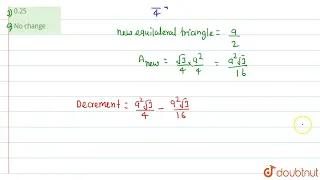 3) 0.25
4) No change
4
new equilateral triangle = a/2
A new = √3/4 × a²/4 = a²√3/16
Decrement = a²√3/4 - a²√3/16
doubtnut